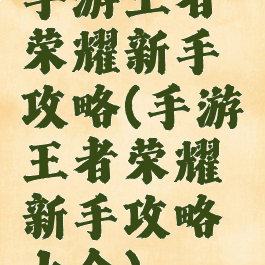 手游王者
荣耀新手
攻略(手游
王者荣耀
新手攻略
大全)